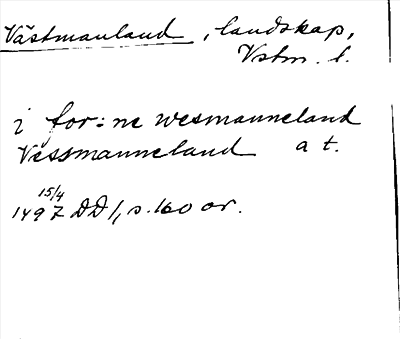 Västmanland, landskap,
Vstm. l.
i for:ne wesmanneland
Vessmanneland a t.
15/4
1497 DD 1, s. 160 or.